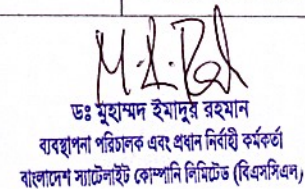 ডঃ মুহাম্মদ ইমাদুর রহমান
ব্যবস্থাপনা পরিচালক এবং প্রধান নির্বাহী কর্মকর্তা
বাংলাদেশ স্যাটেলাইট কোম্পানি লিমিটেড (বিএসসিএল)